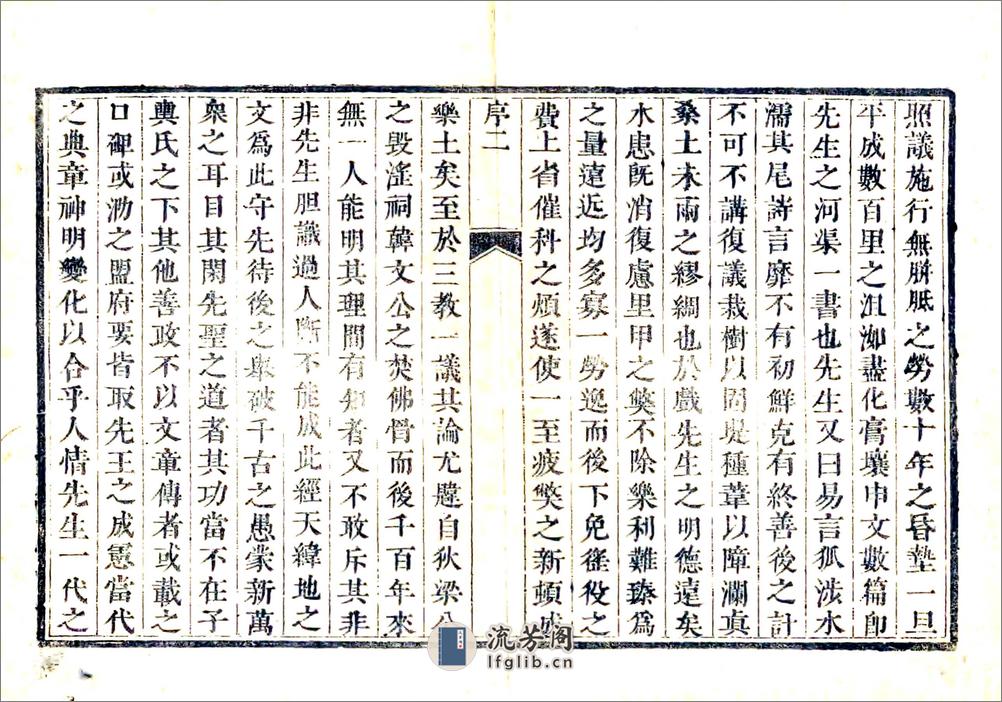 照議施行無胼胝之勞數十年之昏墊一旦
平成數百里之沮洳盡化膏壤申文數篇即
先生之河渠一書也先生又曰易言狐涉水
濡其尾詩言靡不有初鮮克有終善後之計
不可不講復議栽樹以固堤種葦以障瀾真
桑土未雨之繆綢也於戲先生之明德遠矣
水患旣消復慮里甲之獘不除樂利難臻爲
之量遠近均多寡一勞逸而後下免徭役之
費上省催科之煩遂使一至疲獘之新頓成
序二
樂土矣至於三教一議其論尤韙自狄梁公
之毀淫祠韓文公之焚佛骨而後千百年來
無一人能明其理間有知者又不敢斥其非
非先生胆識過人斷不能成此經天緯地之
文爲此守先待後之舉破千古之愚蒙新萬
衆之耳目其閑先聖之道者其功當不在子
輿氏之下其他善政不以文章傳者或載之
口碑或泐之盟府要皆取先王之成憲當代
之典章神明變化以合乎人情先生一代之
流芳閣
lfglib.cn